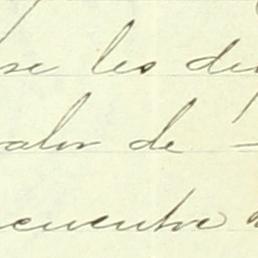 se les de
valor de
cuentre